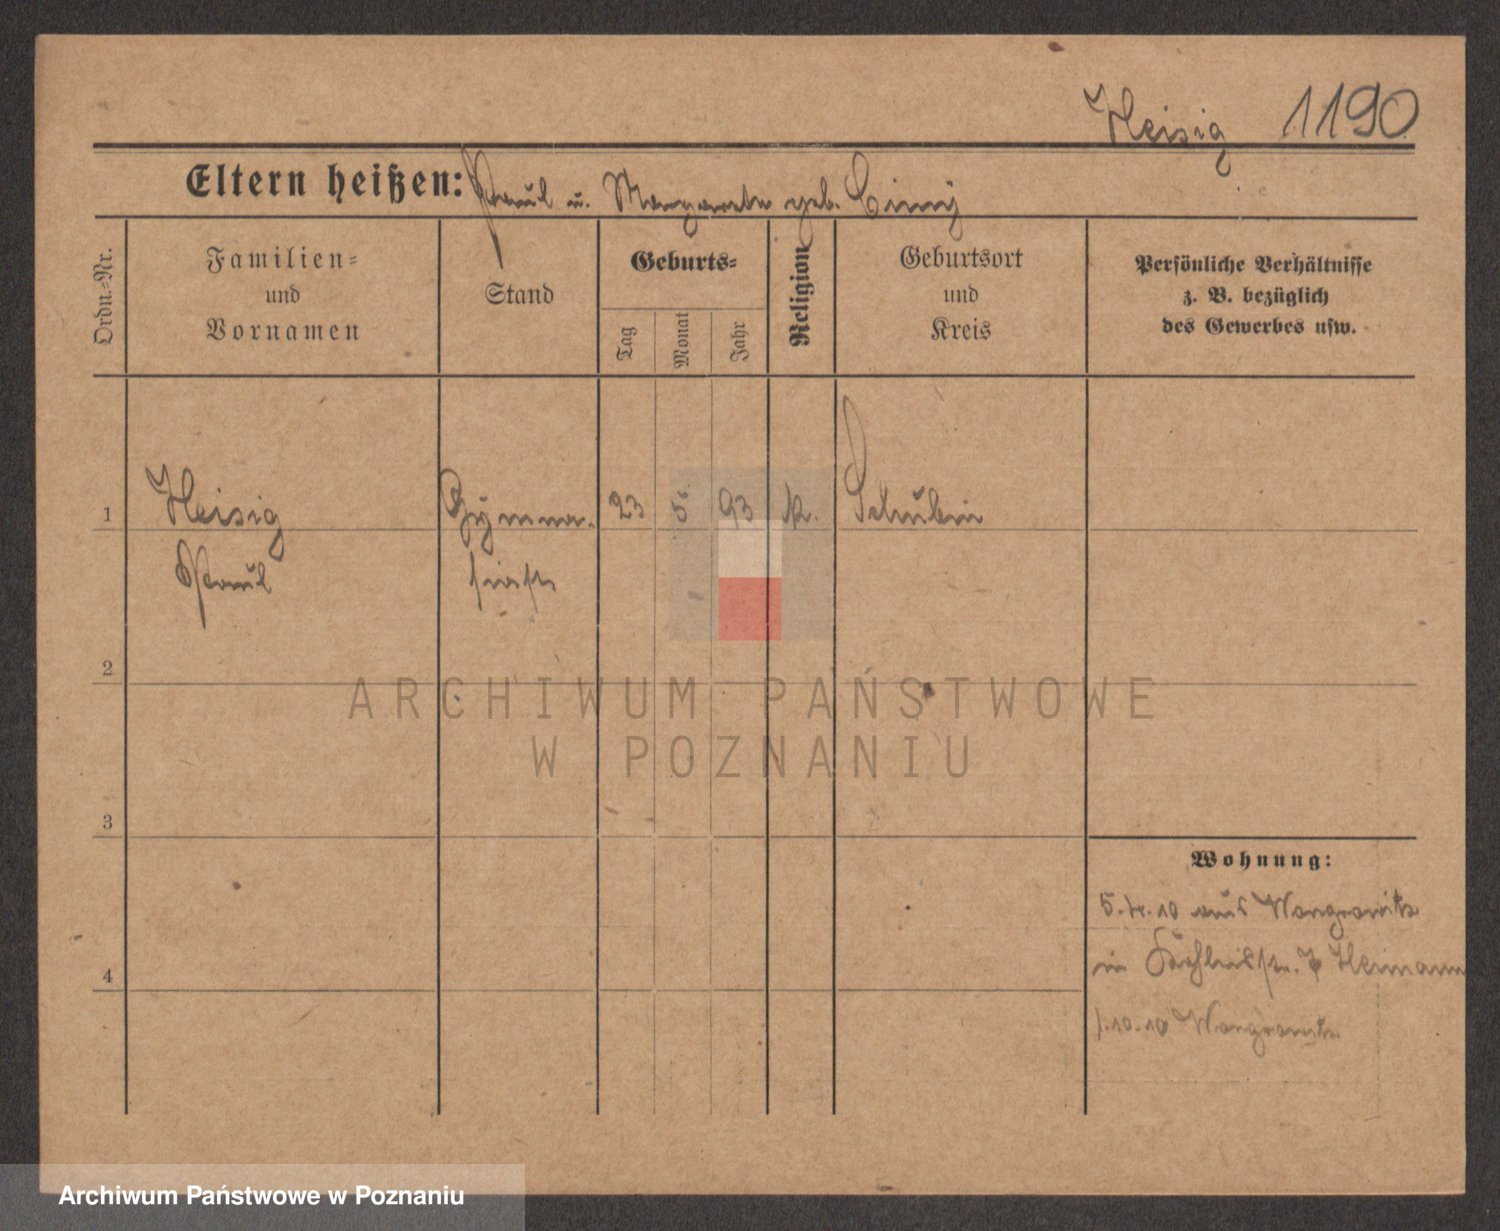 Heisig 1190
Eltern heißen: Paul u. Margarete geb.
Ordn.-Nr.
Familien-
und
Vornamen
Stand
Geburts-
Tag
Monat
Jahr
Religion
Geburtsort
und
Kreis
Persönliche Verhältnisse
z. B. bezüglich
des Gewerbes usw.
1 Heisig Gymna- 23 5 93 k. Schubin
Paul siast
2
ARCHIWUM PAŃSTWOWE
W POZNANIU
3
Wohnung:
5.4.10 aus Wongrowitz
4
in 7 Heimann
1.10.10 Wongrowitz
Archiwum Państwowe w Poznaniu